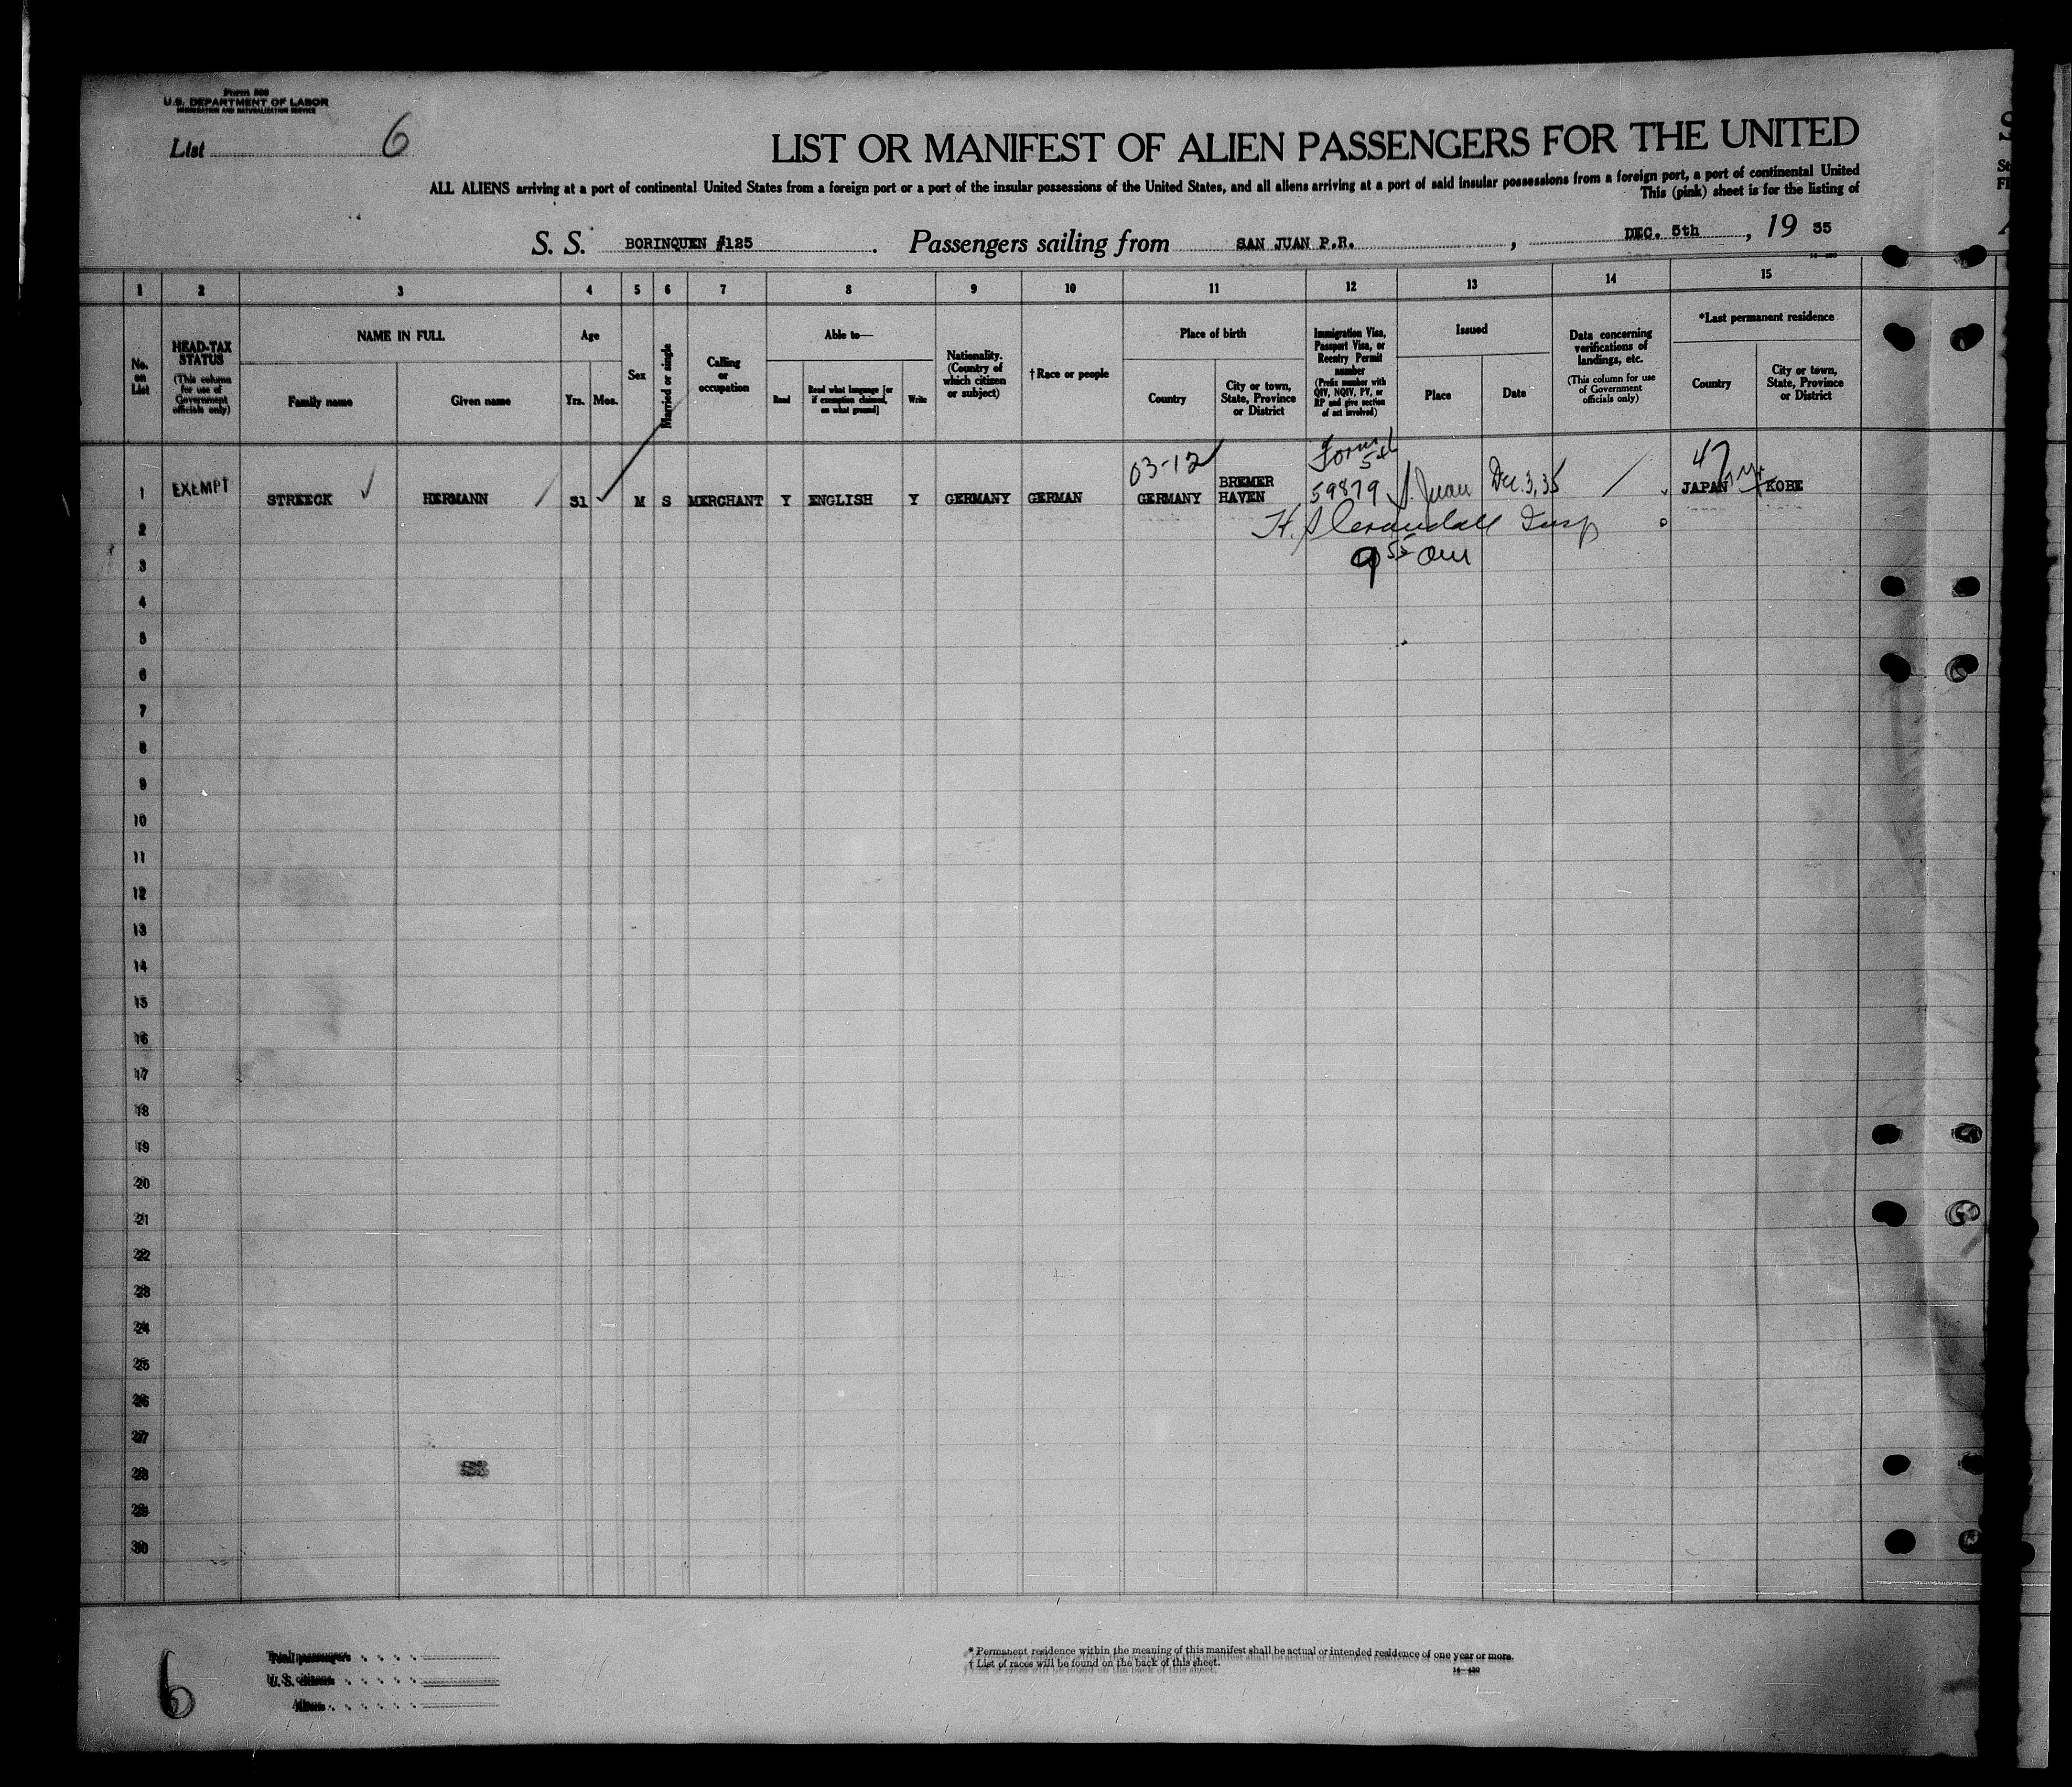 Form 500
U.S. DEPARTMENT OF LABOR
IMMIGRATION AND NATURALIZATION SERVICE
List 6
LIST OR MANIFEST OF ALIEN PASSENGERS FOR THE UNITED
ALL ALIENS arriving at a port of continental United States from a foreign port or a port of the insular possessions of the United States, and all aliens arriving at a port of said insular possessions from a foreign port, a port of continental United
This (pink) sheet is for the listing of
S. S. BORINQUEN #125. Passengers sailing from SAN JUAN P.R., DEC. 5th, 19 35
1 2 3 4 5 6 7 8 9 10 11 12 13 14 15
No. on List
HEAD-TAX STATUS (This column for use of Government officials only)
NAME IN FULL
Family name
Given name
Age
Yrs. Mos.
Sex
Married or single
Calling or occupation
Able to—
Read
Read what language [or if exemption claimed, on what ground]
Write
Nationality. (Country of which citizen or subject)
†Race or people
Place of birth
Country
City or town, State, Province or District
Immigration Visa, Passport Visa, or Reentry Permit number (Prefix number with QIV, NQIV, PV, or RP and give section of act involved)
Issued
Place
Date
Data concerning verifications of landings, etc. (This column for use of Government officials only)
*Last permanent residence
Country
City or town, State, Province or District
03-12 Form 47
1 EXEMPT STREECK HERMANN 31 M S MERCHANT Y ENGLISH Y GERMANY GERMAN GERMANY BREMER HAVEN 59879 S. Juan Dec. 3, 35 JAPAN KOBE
2 Insp
3 9 55 am
4
5
6
7
8
9
10
11
12
13
14
15
16
17
18
19
20
21
22
23
24
25
26
27
28
29
30
6
Total passengers
U. S. citizens
Aliens
* Permanent residence within the meaning of this manifest shall be actual or intended residence of one year or more.
† List of races will be found on the back of this sheet.
14—430